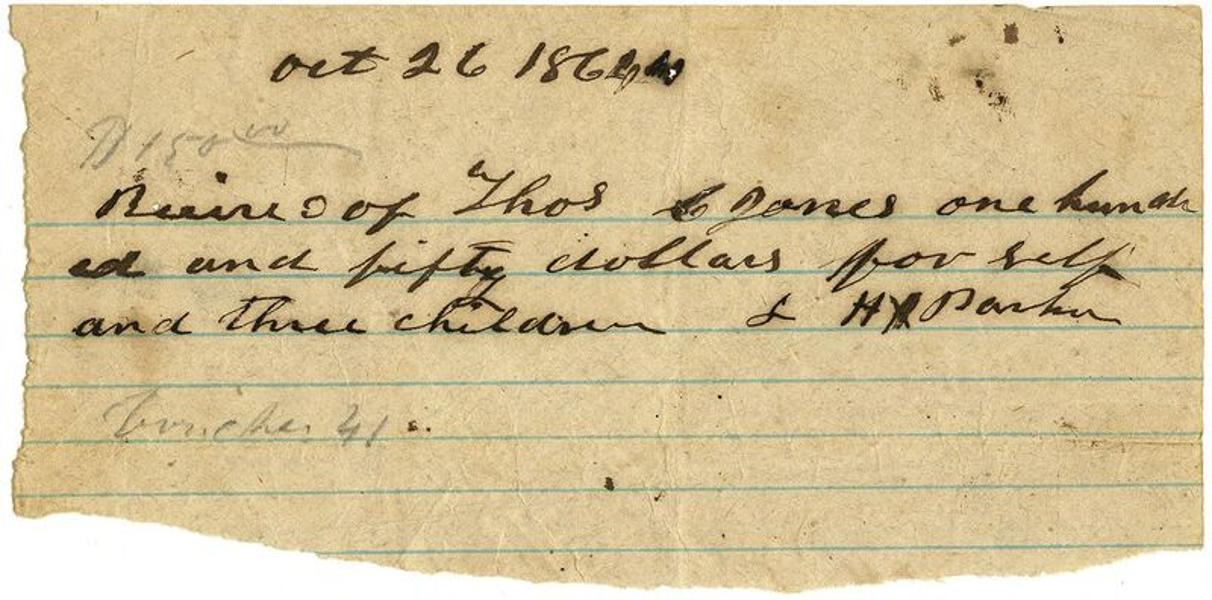 Oct 26 1864
$150.00
Recieved of Thos C Jones one hundr
ed and fifty dollars for self
and three children L H Barker
Voucher 41